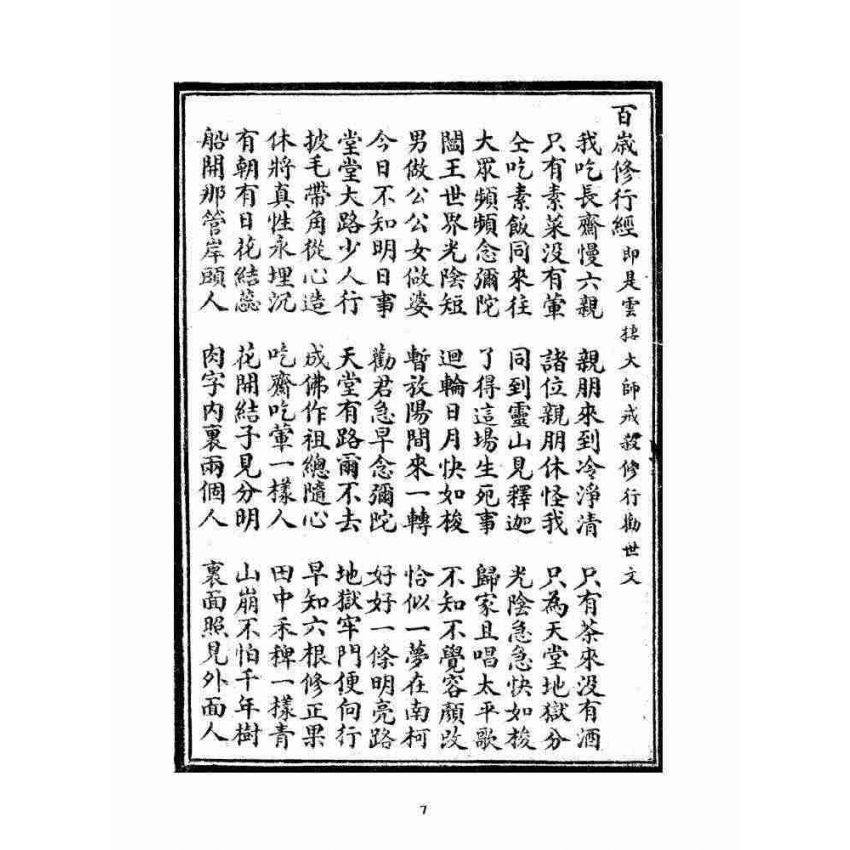 百歲修行經 即是雲棲大師戒殺修行勸世文
我吃長齋慢六親 親朋來到冷淨清 只有茶來没有酒
只有素菜没有葷 諸位親朋休怪我 只為天堂地獄分
仝吃素飯同來往 同到靈山見釋迦 光陰急急快如梭
大眾頻頻念彌陀 了得這場生死事 歸家且唱太平歌
閻王世界光陰短 迴輪日月快如梭 不知不覺容顏改
男做公公女做婆 暫放陽間來一轉 恰似一夢在南柯
今日不知明日事 勸君急早念彌陀 好好一條明亮路
堂堂大路少人行 天堂有路爾不去 地獄牢門便向行
披毛帶角從心造 成佛作祖總隨心 早知六根修正果
休將真性永埋沉 吃齋吃葷一樣人 田中禾稗一樣青
有朝有日花結蕊 花開結子見分明 山崩不怕千年樹
船開那管岸頭人 肉字内裏兩個人 裏面照見外面人
7